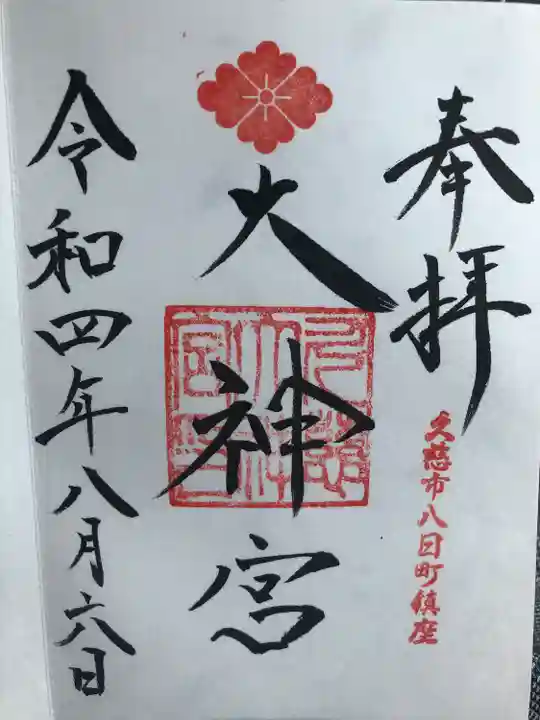 奉拝
久慈市八日町鎮座
大神宮
令和四年八月六日